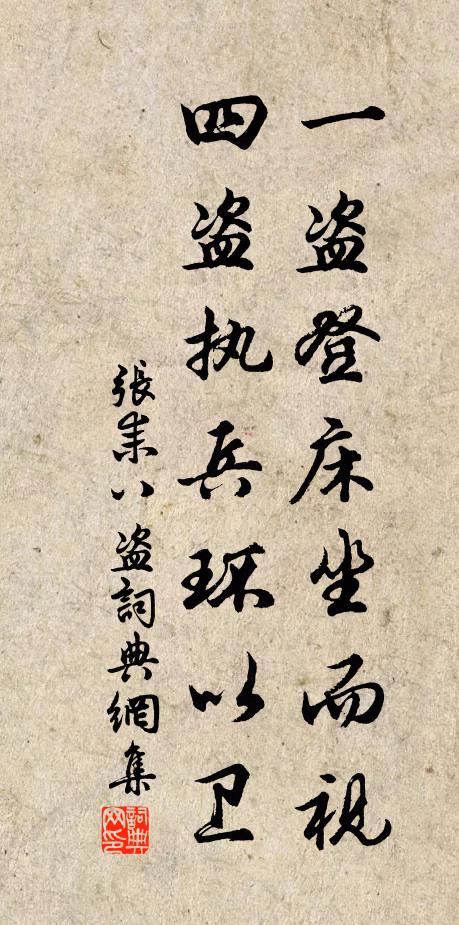 一盗登床坐而视
四盗执兵环以卫
張耒八盗詞典網集
詞典网印